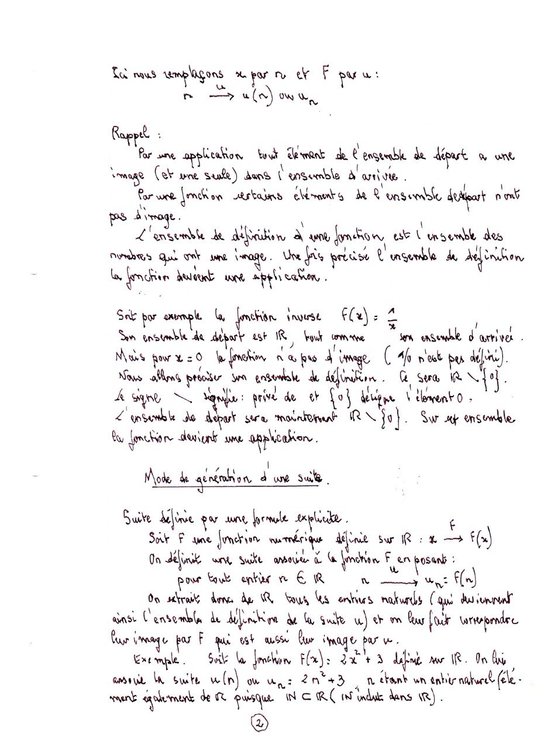 Ici nous remplaçons x par n et F par u :
n —u→ u(n) ou uₙ
Rappel :
Par une application tout élément de l'ensemble de départ a une
image (et une seule) dans l'ensemble d'arrivée.
Par une fonction certains éléments de l'ensemble de départ n'ont
pas d'image.
L'ensemble de définition d'une fonction est l'ensemble des
nombres qui ont une image. Une fois précisé l'ensemble de définition
la fonction devient une application.
Soit par exemple la fonction inverse F(x) = 1/x
Son ensemble de départ est ℝ, tout comme son ensemble d'arrivée.
Mais pour x = 0 la fonction n'a pas d'image (1/0 n'est pas défini).
Nous allons préciser son ensemble de définition. Ce sera ℝ \ {0}.
Le signe \ signifie : privé de et {0} désigne l'élément 0.
L'ensemble de départ sera maintenant ℝ \ {0}. Sur cet ensemble
la fonction devient une application.
Mode de génération d'une suite.
Suite définie par une formule explicite.
Soit F une fonction numérique définie sur ℝ : x —F→ F(x)
On définit une suite associée à la fonction F en posant :
pour tout entier n ∈ ℝ n —u→ uₙ = F(n)
On extrait donc de ℝ tous les entiers naturels (qui deviennent
ainsi l'ensemble de définition de la suite u) et on leur fait correspondre
leur image par F qui est aussi leur image par u.
Exemple. Soit la fonction F(x) = 2x² + 3 définie sur ℝ. On lui
associe la suite u(n) ou uₙ = 2n² + 3, n étant un entier naturel (élé-
ment également de ℝ puisque ℕ ⊂ ℝ (ℕ inclut dans ℝ).
2